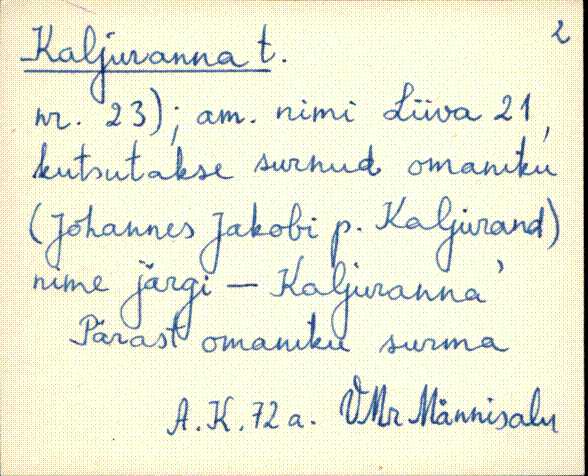 2
Kaljuranna t.
nr. 23); am. nimi Liiva 21,
kutsutakse surnud omaniku
(Johannes Jakobi p. Kaljurand)
nime järgi — Kaljuranna'
Pärast omaniku surma
A.K. 72 a. VMr Männisalu